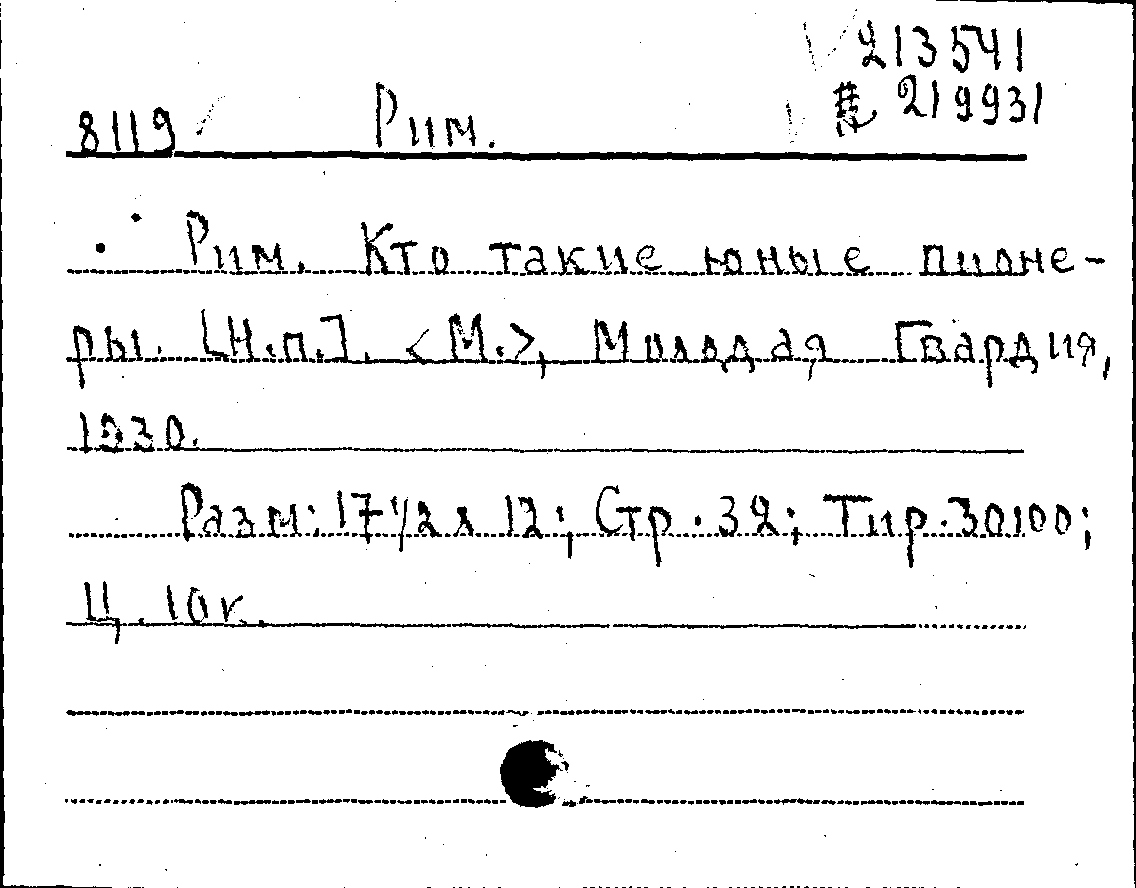 213541
219931
8119 Рим.
Рим. Кто такие юные пионе-
ры. [Н.п.]. <М.>, Молодая Гвардия,
1930.
Разм: 17 1/2 х 12; Стр. 32; Тир. 30100;
Ц. 10 к.